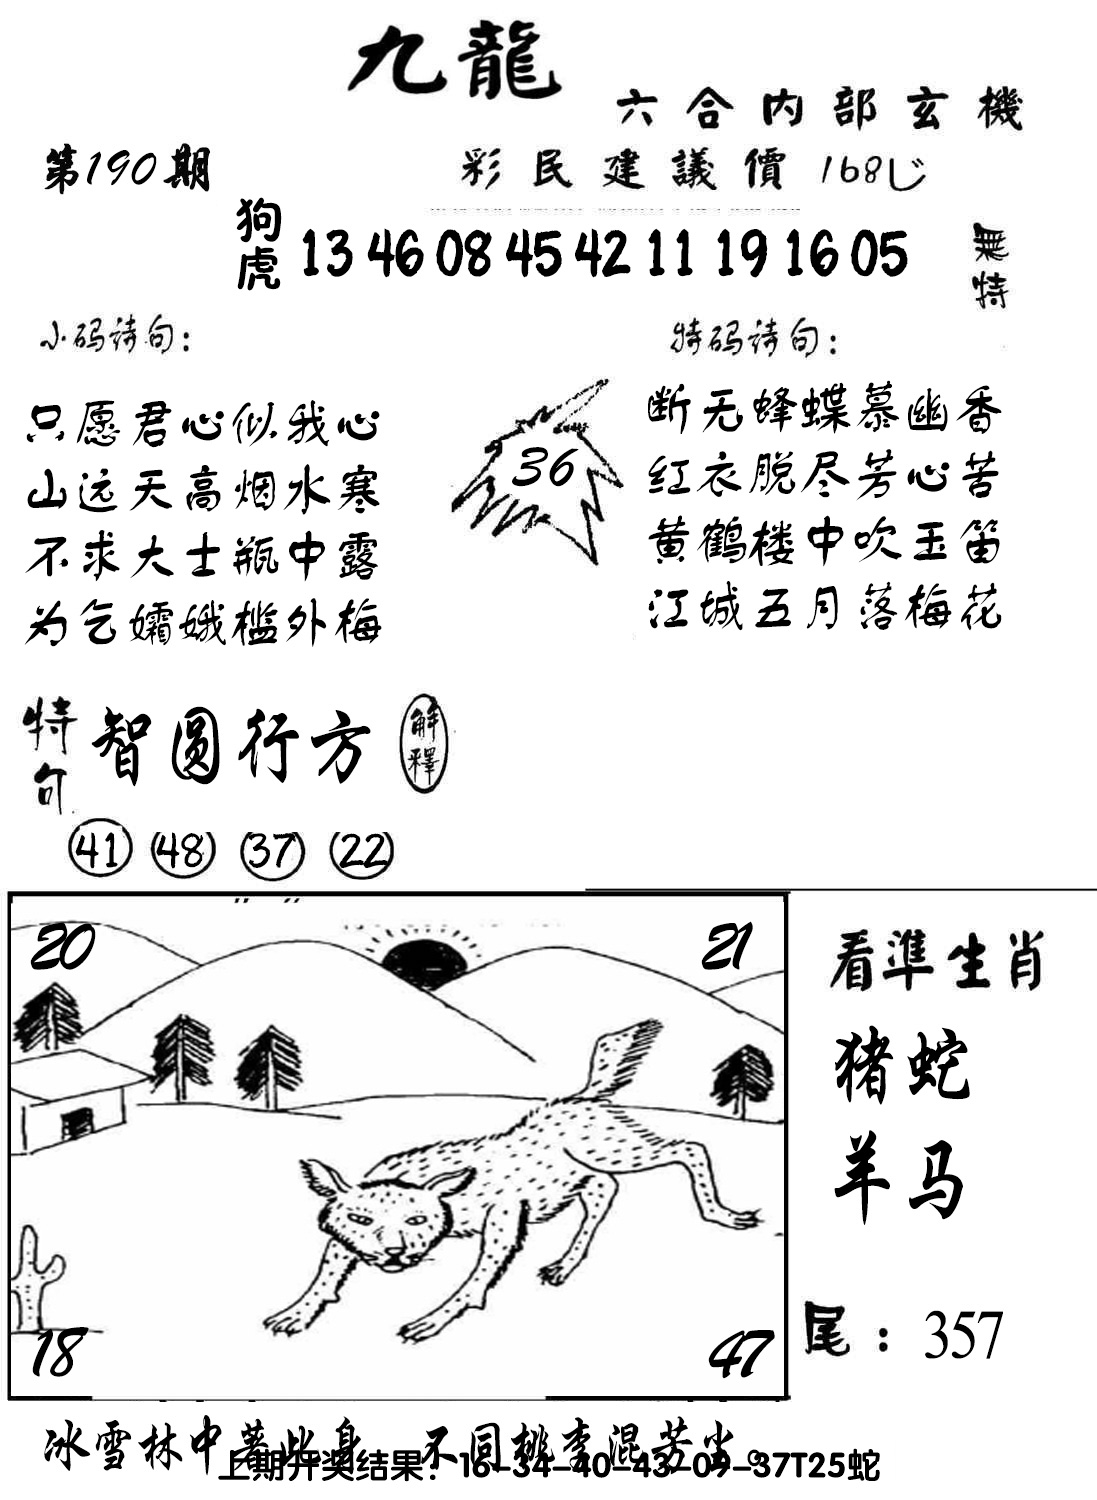 九龍
六合内部玄機
第190期
彩民建議價 168
狗虎 13 46 08 45 42 11 19 16 05 無特
小码诗句：
只愿君心似我心
山远天高烟水寒
不求大士瓶中露
为乞孀娥槛外梅
36
特码诗句：
断无蜂蝶慕幽香
红衣脱尽芳心苦
黄鹤楼中吹玉笛
江城五月落梅花
特句 智圆行方 解釋
41 48 37 22
20 21
18 47
看準生肖
猪蛇
羊马
尾：357
冰雪林中著此身 不同桃李混芳尘。
上期开奖结果：16-34-40-43-09-37T25蛇